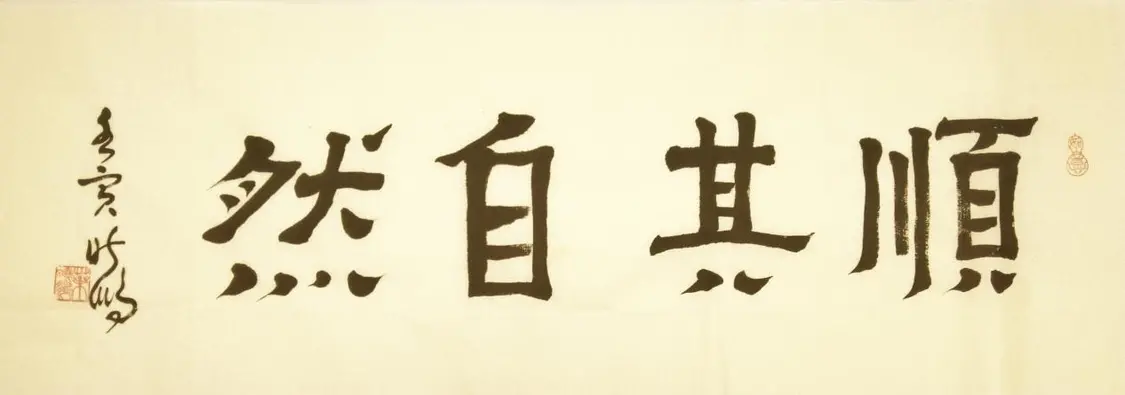 順其自然
壬寅